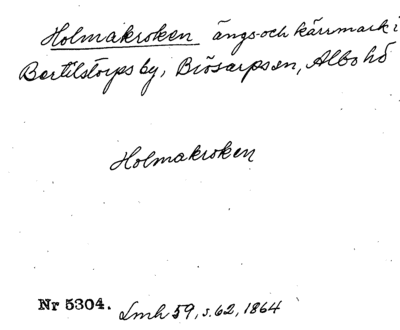 Holmakroken ängs-och kärrmark i
Bertilstorps by, Brösarps sn, Albo hd
Holmakroken
Nr 5304. Lmh 59, s. 62, 1864